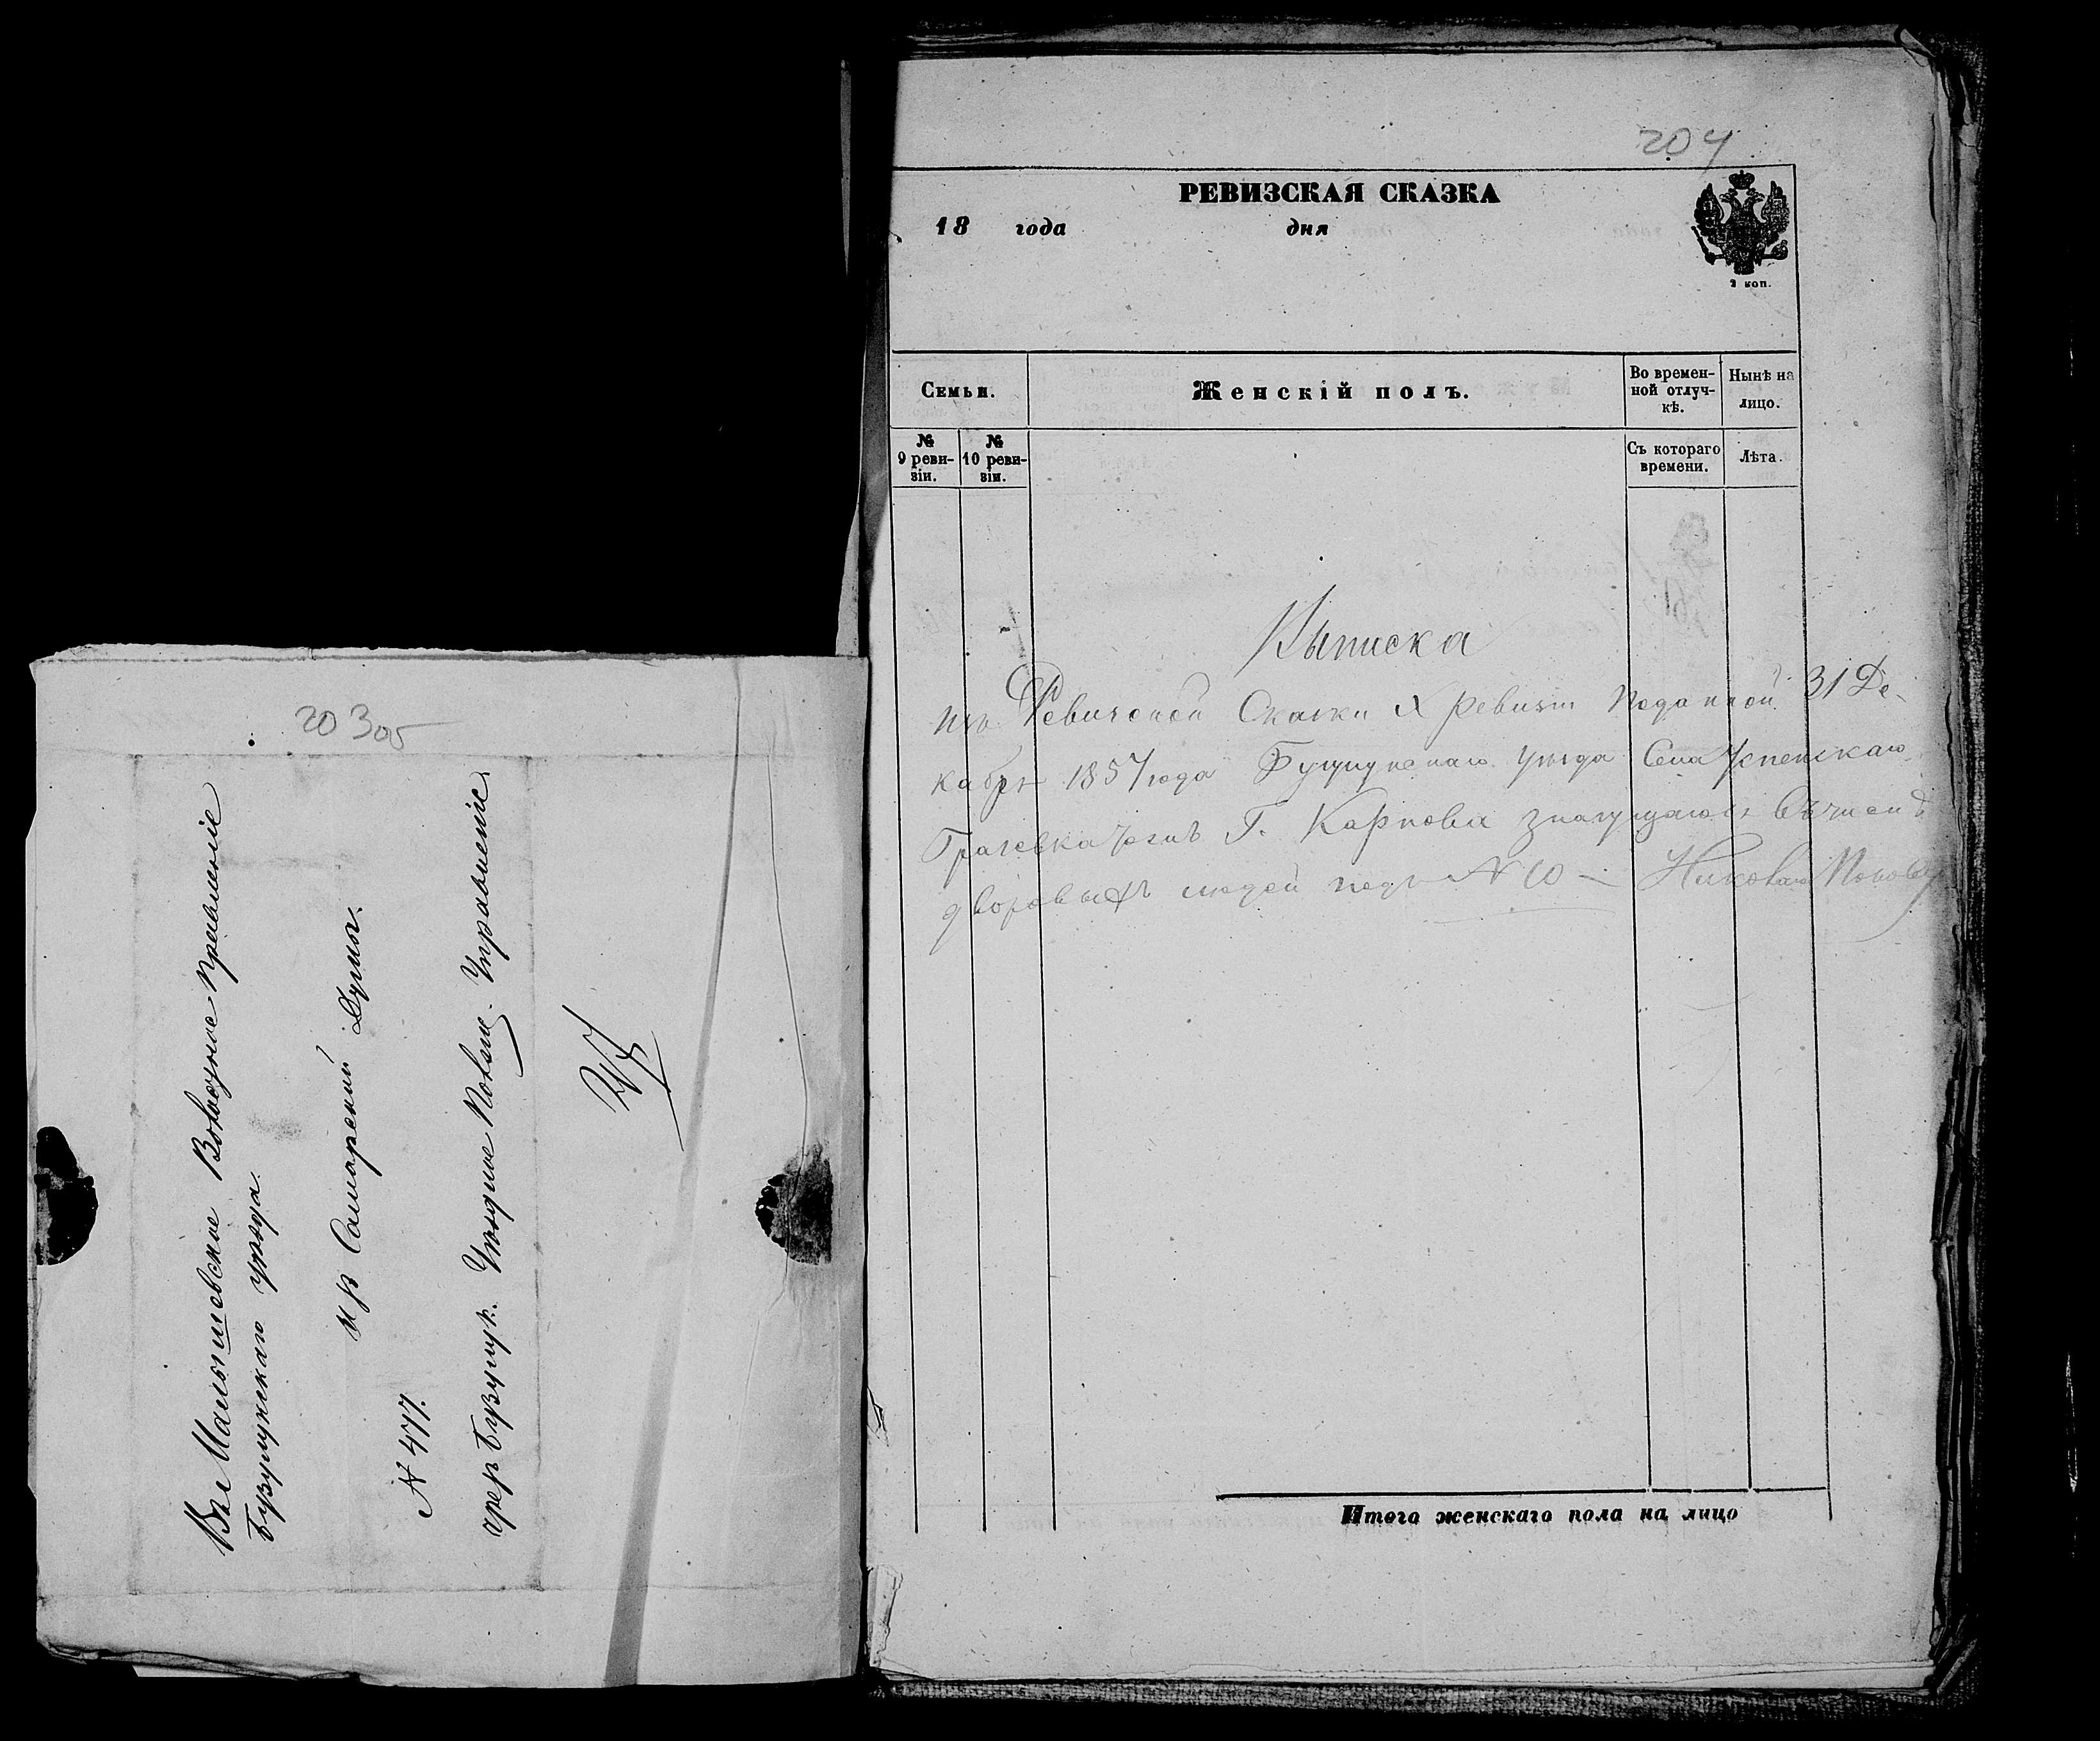 203 об
Въ Малышевское Волостное Правленіе
Бузулукскаго уезда.
изъ Самарской Думы.
№ 477.
чрез Бузулук. Уездное Полиц. Управленіе
204
РЕВИЗСКАЯ СКАЗКА
18 года дня
2 коп.
Семьи.
Женскій полъ.
Во времен-
ной отлуч-
кѣ.
Нынѣ на
лицо.
№
9 реви-
зіи.
№
10 реви-
зіи.
Съ котораго
времени.
Лѣта.
Выписка
изъ Ревизской Сказки X ревизіи поданной 31 Де-
кабря 1857 года Бузулукскаго уезда Села Успенскаго
Грачевка тожъ Г. Карпова значущагося въ числѣ
дворовыхъ людей подъ № 10 – Николая Попова
Итого женскаго пола на лицо